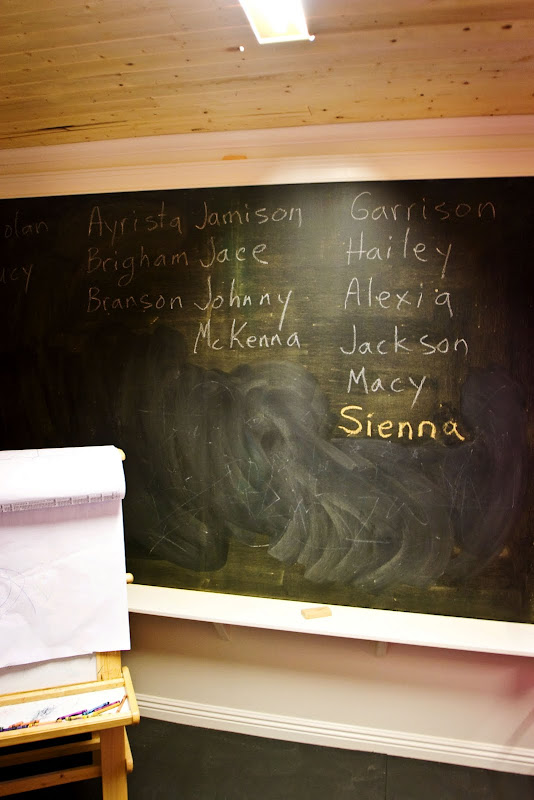 Ayrista Jamison Garrison
Brigham Jace Hailey
Branson Johnny Alexia
McKenna Jackson
Macy
Sienna